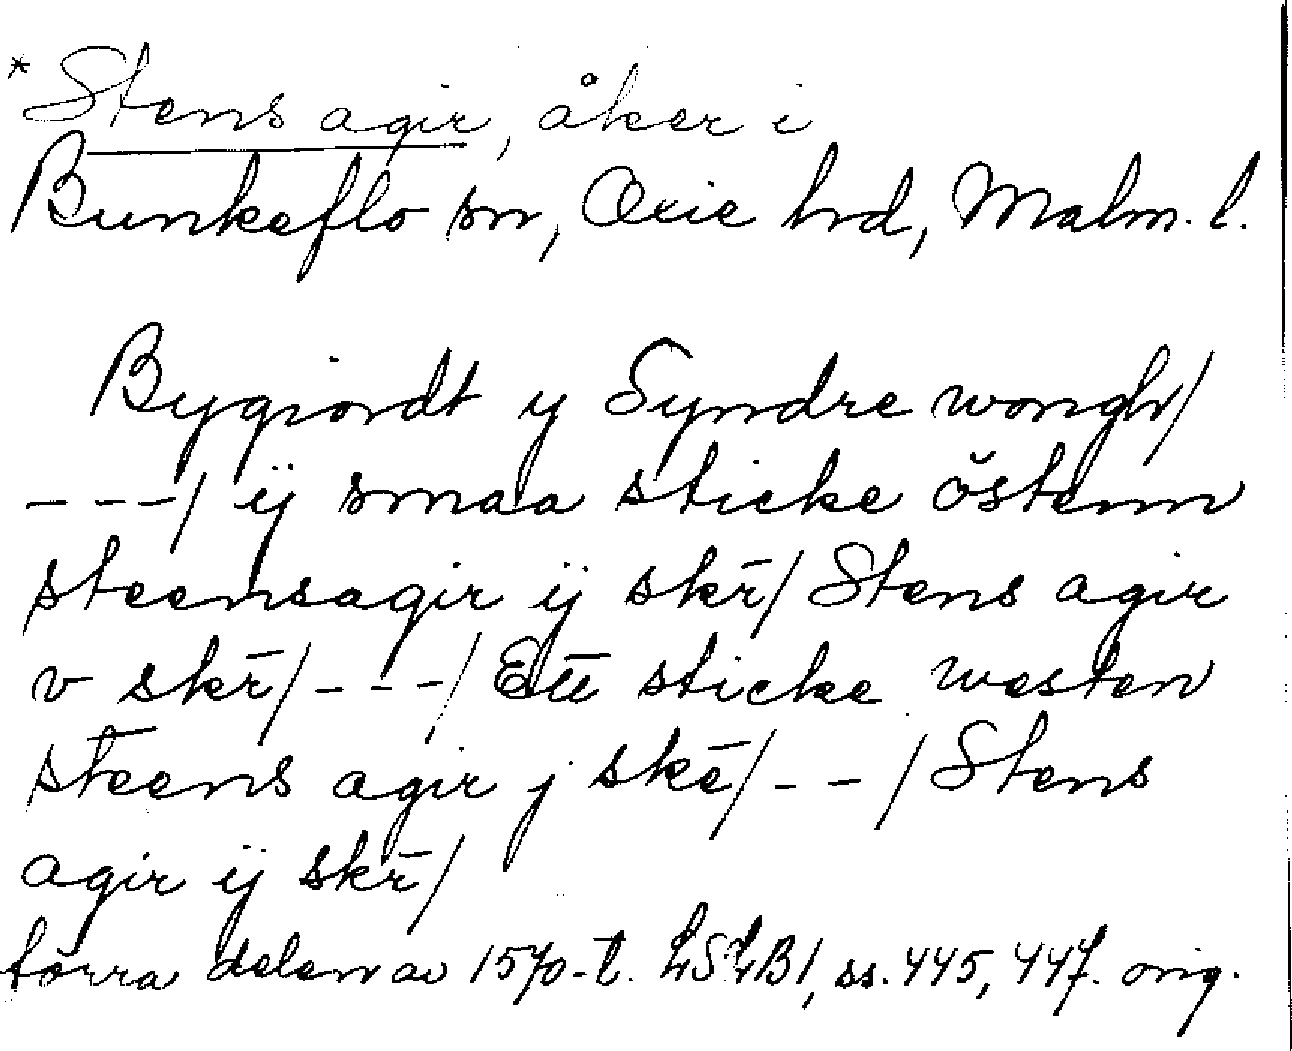 *Stens agir, åker i
Bunkeflo sn, Oxie hrd, Malm. l.
Bygiordt y Syndre wongh/
---/ ij smaa sticke östenn
steensagir ij skr̄/ Stens agir
v skr̄/---/ Ett sticke westen
steens agir j skē/--/ Stens
agir ij skr̄/
förra delen av 1570-t. LSLB1, ss. 445, 447. orig.